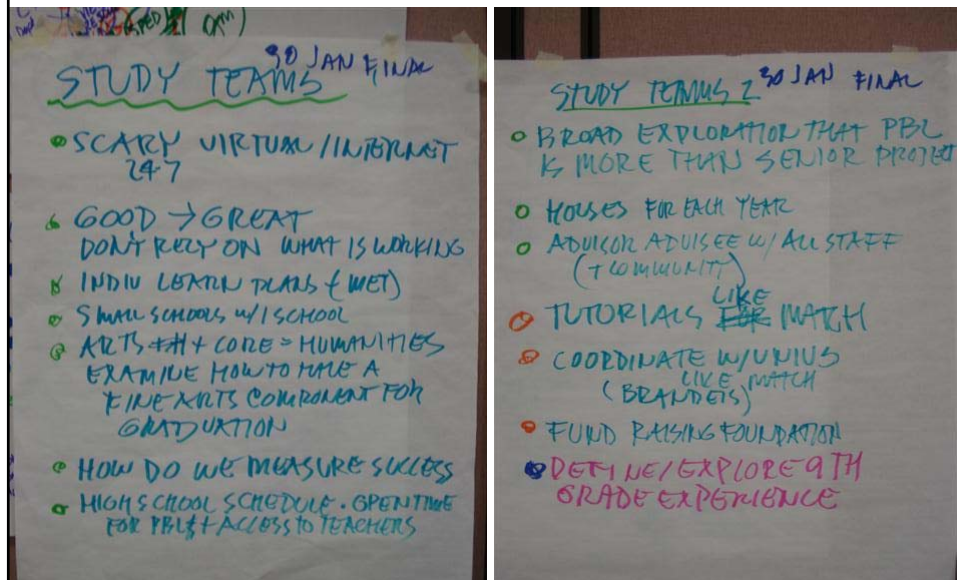 OAM)
30 JAN FINAL
STUDY TEAMS
SCARY VIRTUAL / INTERNET
24-7
GOOD → GREAT
DON'T RELY ON WHAT IS WORKING
INDIV LEARN PLANS (MET)
SMALL SCHOOLS W/I SCHOOL
ARTS + CORE = HUMANITIES
EXAMINE HOW TO HAVE A
FINE ARTS COMPONENT FOR
GRADUATION
HOW DO WE MEASURE SUCCESS
HIGH SCHOOL SCHEDULE. OPEN TIME
FOR PBL + ACCESS TO TEACHERS
STUDY TEAMS 2 30 JAN FINAL
BROAD EXPLORATION THAT PBL
IS MORE THAN SENIOR PROJECT
HOUSES FOR EACH YEAR
ADVISOR ADVISEE W/ ALL STAFF
(+ COMMUNITY)
LIKE
TUTORIALS FOR MATCH
COORDINATE W/ UNIVS
LIKE MATCH
(BRANDEIS)
FUND RAISING FOUNDATION
DEFINE/EXPLORE 9TH
GRADE EXPERIENCE